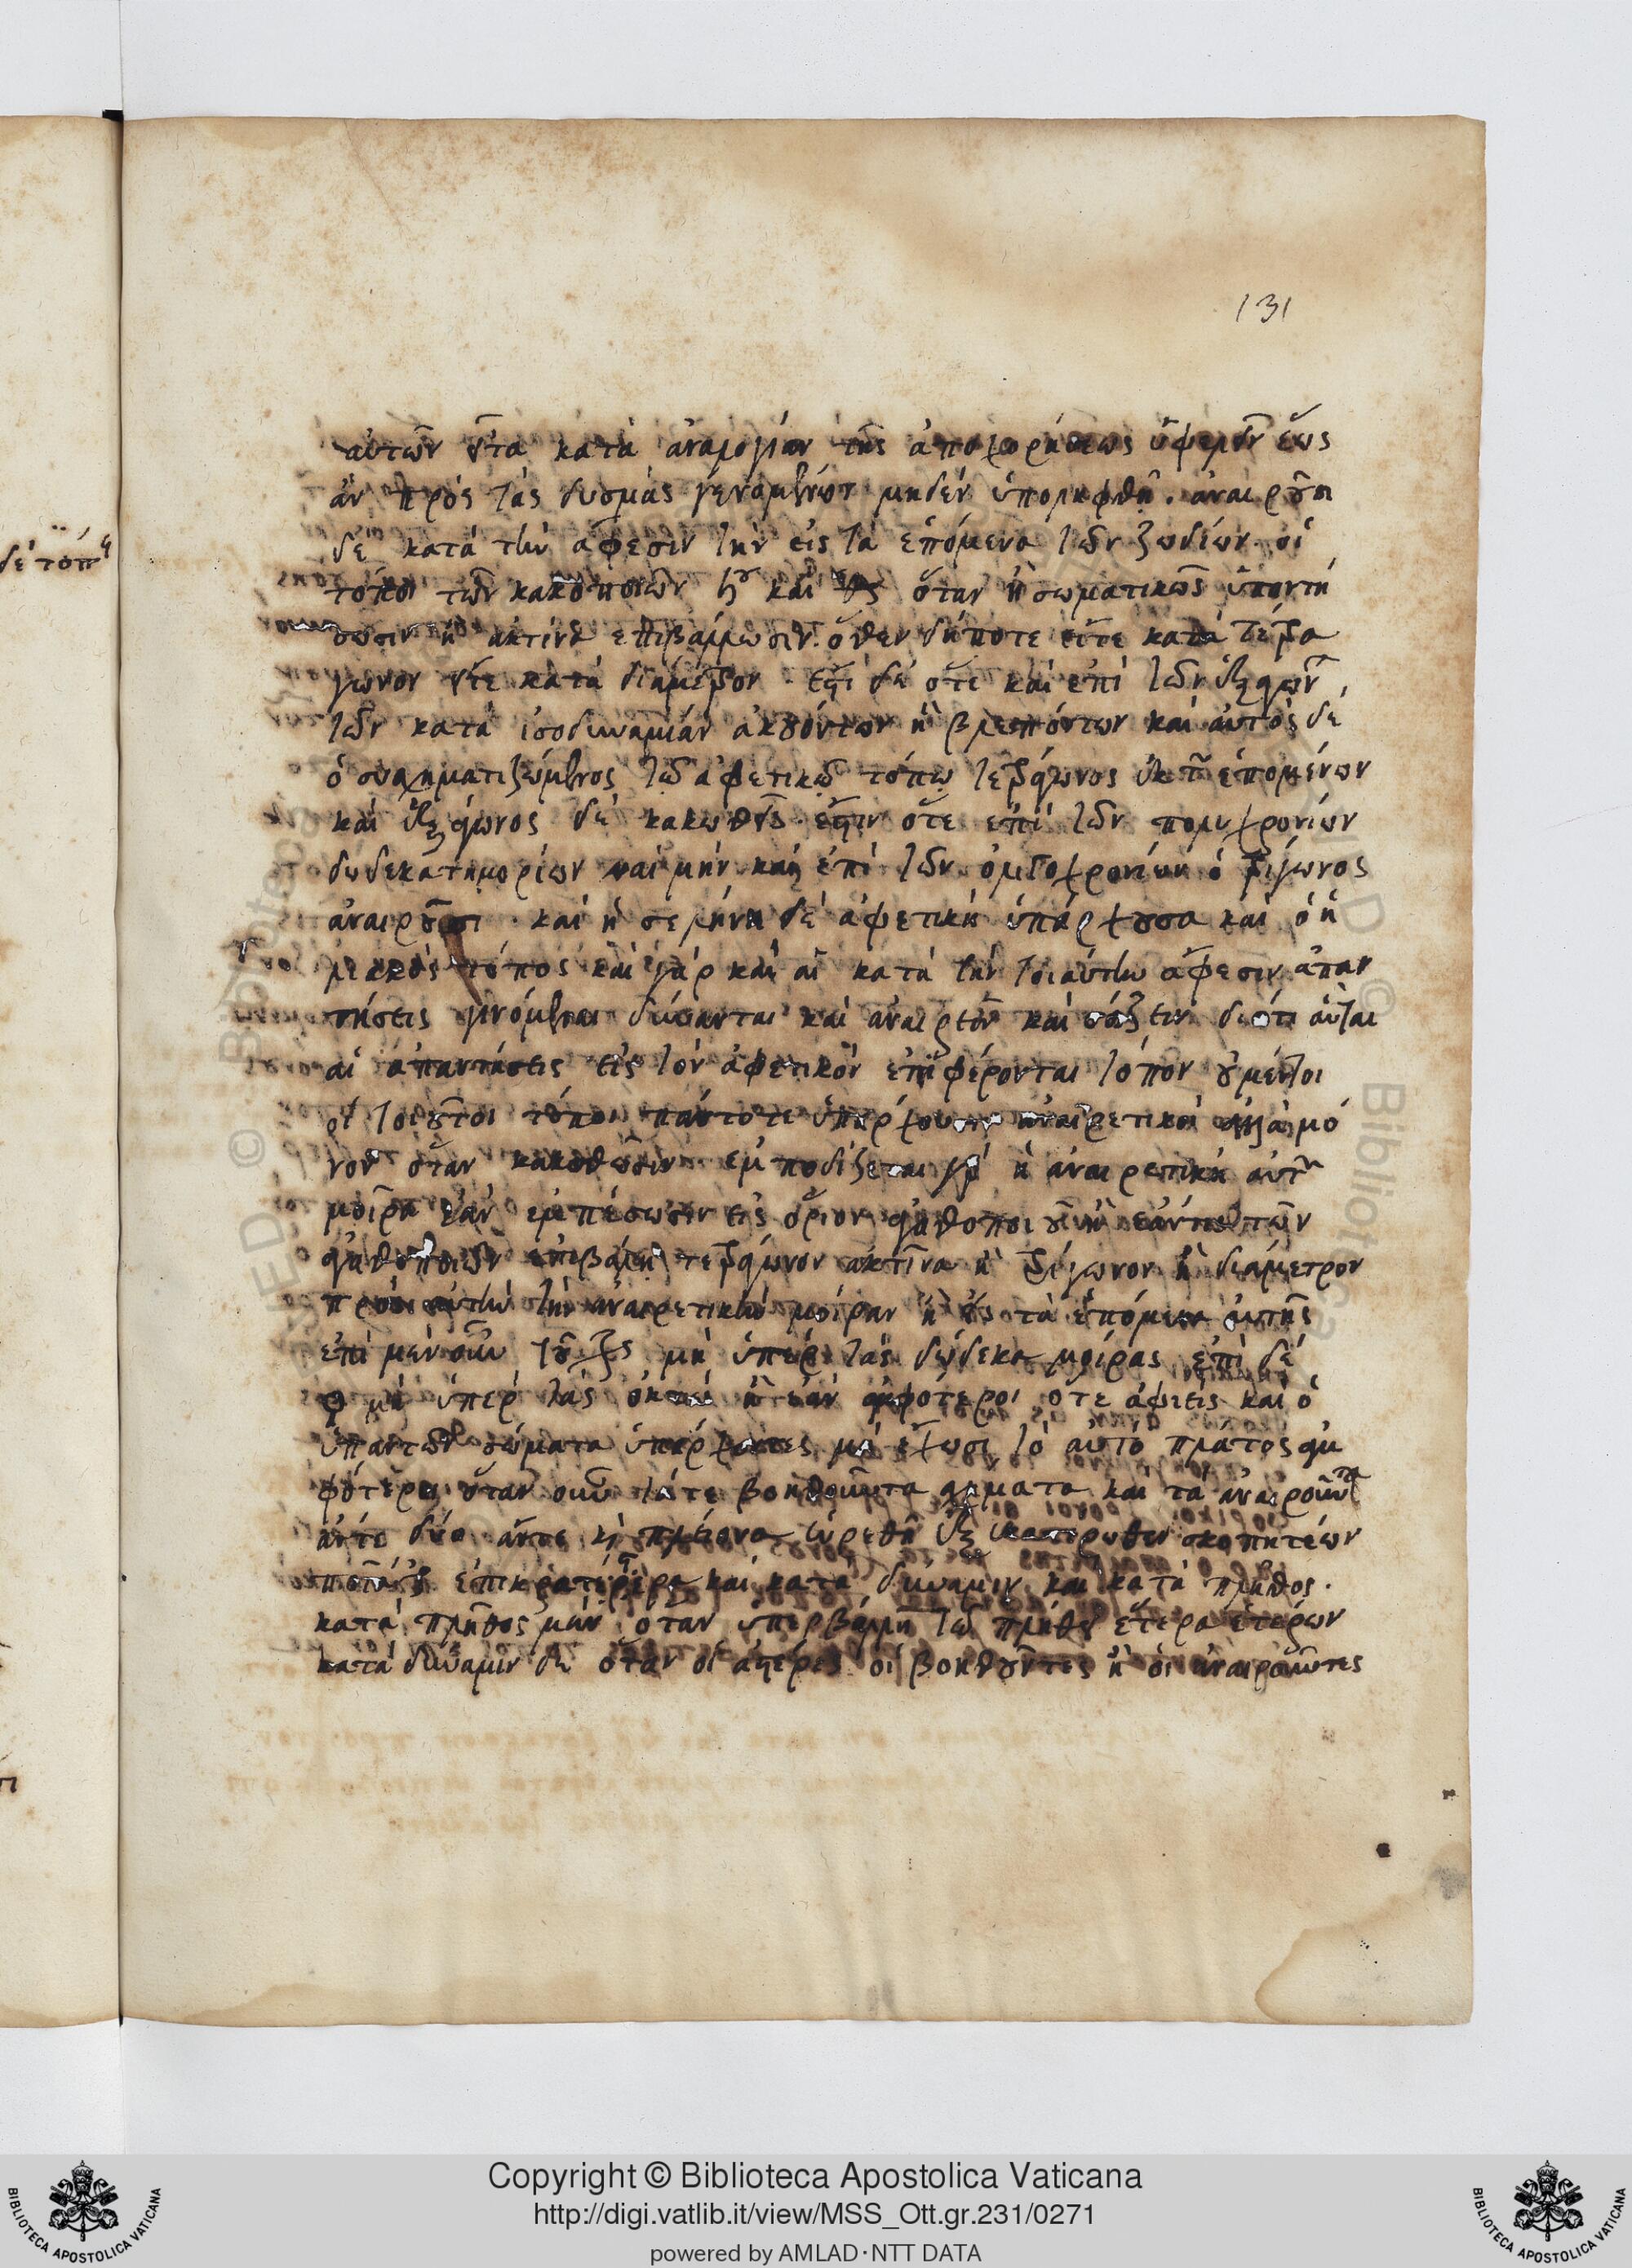 131
αὐτῶν εἶτα κατὰ ἀναλογίαν τῆς ἀποχωρήσεως ὑφελεῖν ἕως
ἂν πρὸς τὰς δυσμὰς γενομένων μηδὲν ὑπολειφθῇ. ἀναιροῦσι
δὲ κατὰ τὴν ἄφεσιν τὴν εἰς τὰ ἑπόμενα τῶν ζωδίων οἱ
τόποι τῶν κακοποιῶν ♄ καὶ ὅταν ἢ σωματικῶς ὑπαντή
σωσιν ἢ ἀκτῖνα ἐπιβάλλωσιν ὅθεν δήποτε εἴτε κατὰ τετρά
γωνον εἴτε κατὰ διάμετρον. ἔστι δὲ ὅτε καὶ ἐπὶ τῶν ἑξαγών
τῶν κατὰ ἰσοδυναμίαν ἀκουόντων ἢ βλεπόντων καὶ αὐτὸς δὲ
ὁ συσχηματιζόμενος τῷ ἀφετικῷ τόπῳ τετράγωνος ἐκ τῶν ἑπομένων
καὶ ἑξάγωνος δὲ κακωθεὶς. ἔστιν ὅτε ἐπὶ τῶν πολυχρονίων
δωδεκατημορίων ναὶ μὴν καὶ ἐπὶ τῶν ὀλιγοχρονίων ὁ τρίγωνος
ἀναιροῦσι. καὶ ἡ σελήνη δὲ ἀφετικὴ ὑπάρχουσα καὶ ὁ ἡ
λιακὸς τόπος καὶ γὰρ καὶ αἱ κατὰ τὴν τοιαύτην ἄφεσιν ἀπαν
τήσεις γινόμεναι δύνανται καὶ ἀναιρεῖν καὶ σώζειν διότι αὗται
αἱ ἀπαντήσεις εἰς τὸν ἀφετικὸν ἐπιφέρονται τόπον οὐ μέντοι
οἱ τοιοῦτοι τόποι πάντοτε ὑπάρχουσιν ἀναιρετικοὶ ἀλλὰ μό
νον ὅταν κακωθῶσιν ἐμποδίζεται γὰρ ἡ ἀναιρετικὴ αὐτῶν
μοῖρα ἐὰν ἐμπέσωσιν εἰς ὅριον ἀγαθοποιοῦ ἢ ἐάν τις τῶν
ἀγαθοποιῶν ἐπιβάλῃ τετράγωνον ἀκτῖνα ἢ τρίγωνον ἢ διάμετρον
πρὸς αὐτὴν τὴν ἀναιρετικὴν μοῖραν ἢ εἰς τὰ ἑπόμενα αὐτῆς
ἐπὶ μὲν οὖν τοῦ μὴ ὑπὲρ τὰς δώδεκα μοίρας ἐπὶ δὲ
♀ μὴ ὑπὲρ τὰς ὀκτὼ ἢ ἐὰν ἀμφότεροι ὅτε ἀφεὶς καὶ ὁ
ὑπαντῶν σώματα ὑπάρχοντες μὴ ἔχωσι τὸ αὐτὸ πλάτος ἀμ
φότεροι ὅταν οὖν τά τε βοηθοῦντα καὶ τὰ ἀναιροῦντα
ἄντε δύο ἄντε καὶ πλείονα εὑρεθῇ ἐξ ἑκατέρωθεν σκοπητέων
ἐπικρατέστερα καὶ κατὰ δύναμιν καὶ κατὰ πλῆθος.
κατὰ πλῆθος μὲν ὅταν ὑπερβάλλῃ τῷ πλήθει ἕτερα ἑτέρων
κατὰ δύναμιν δὲ ὅταν οἱ ἀστέρες οἱ βοηθοῦντες ἢ οἱ ἀναιροῦντες
δὲ τόπ
Copyright © Biblioteca Apostolica Vaticana
http://digi.vatlib.it/view/MSS_Ott.gr.231/0271
powered by AMLAD·NTT DATA
BIBLIOTECA APOSTOLICA VATICANA
BIBLIOTECA APOSTOLICA VATICANA